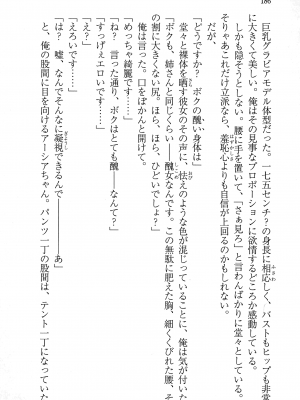 186
巨乳グラビアモデル体型だった。一七五センチの身長に相応しく、バストもヒップも非常
に大きくて美しい。俺はその見事なプロポーションに欲情するどころか感動している。
しかも隠そうとしない。腰に手を置いて、「さぁ見ろ」と言わんばかりに堂々としている。
そりゃあこれだけ立派なら、羞恥心よりも自信が上回るのかもしれない。
だが、
「どうですか？ ボクの醜い身体は──」
堂々と裸体を晒す彼女のその声に、怯えのような色が混じっていることに、俺は気が付いた。
「ボクも、姉さんと同じくらい──醜女なんです。この無駄に肥えた胸、細くくびれた腰、そ
の割に大きな尻。ほら、ほら、ひどいでしょ？」
俺は言った。口をぽかんと開けて。
「めっちゃ綺麗です──」
「すっげぇエロいです──」
「ね？ 言った通り、ボクはとても醜──なんて？」
「えろいです……」
「は？ 嘘、なんでそんなに凝視できるんで── あ」
と、俺の股間に目を向けるアーシアちゃん。パンツ一丁の股間は、テント一丁になっていた